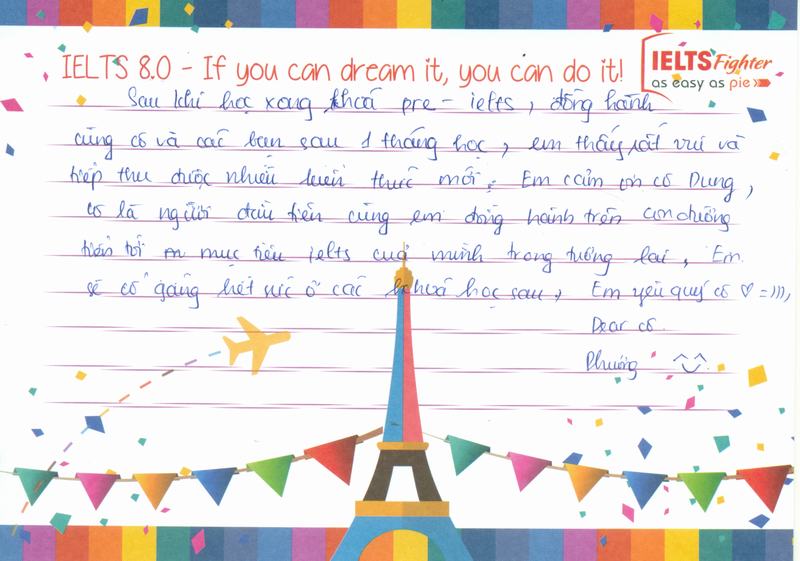 IELTS 8.0 - If you can dream it, you can do it!
IELTS Fighter
as easy as pie
Sau khi học xong khoá pre - ielts, đồng hành
cùng cô và các bạn sau 1 tháng học, em thấy rất vui và
tiếp thu được nhiều kiến thức mới. Em cảm ơn cô Dung,
cô là người đầu tiên cùng em đồng hành trên con đường
tiến tới mục tiêu ielts của mình trong tương lai, Em
sẽ cố gắng hết sức ở các khoá học sau, Em yêu quý cô ♡ =))),
Dear cô
Phương ^^